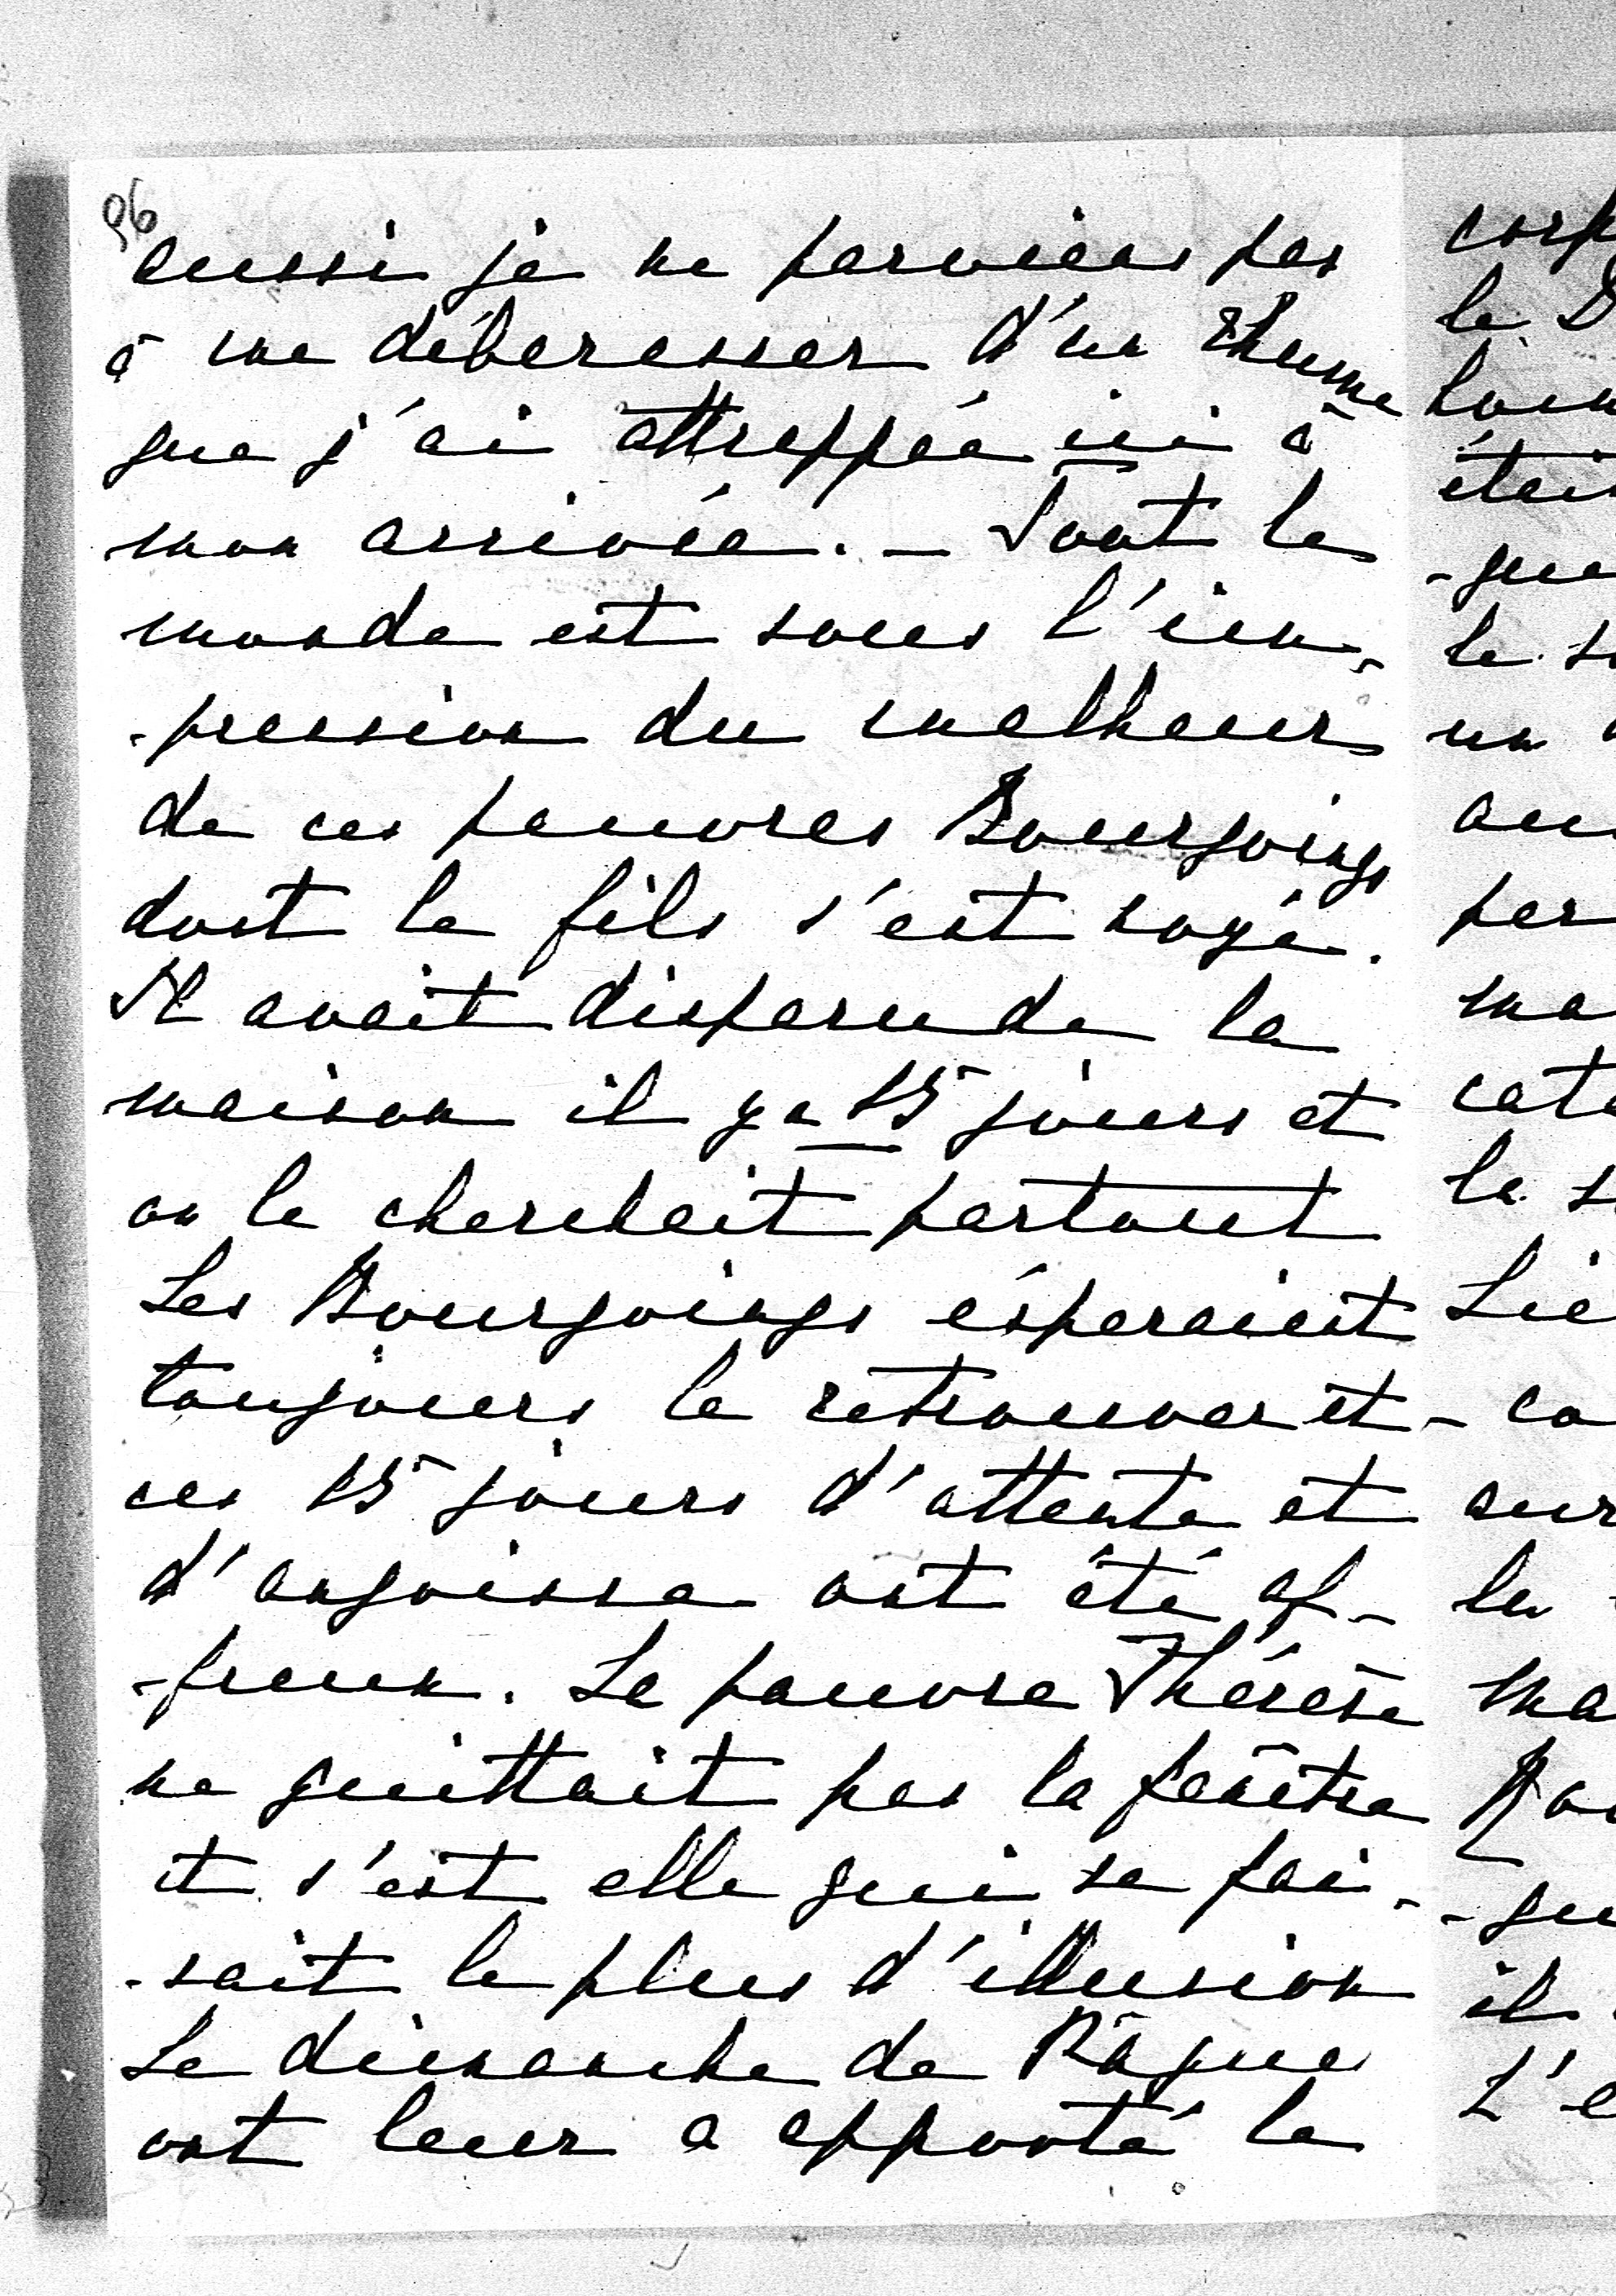 96
aussi je ne parviens pas
à me débarasser d'un rhume
que j'ai attrappée ici à
mon arrivée. - Tout le
monde est sous l'im-
-pression du malheur
de ces pauvres Bourgoings
dont le fils s'est noyé.
Il avait disparu de la
maison il y a 15 jours et
on le cherchait partout
Les Bourgoings éspéraient
toujours le retrouver et
ces 15 jours d'attente et
d'angoisse ont été af-
-freux. La pauvre Thérèse
ne quittait pas la fenêtre
et s'est elle qui se fai-
-sait le plus d'illusion
Le dimanche de Pâques
ont leur a apporté le
corp
le D
était
-que
le s
un
per
ma
cate
le s
Lie
- co
sur
les
ma
-qu
il
L'e